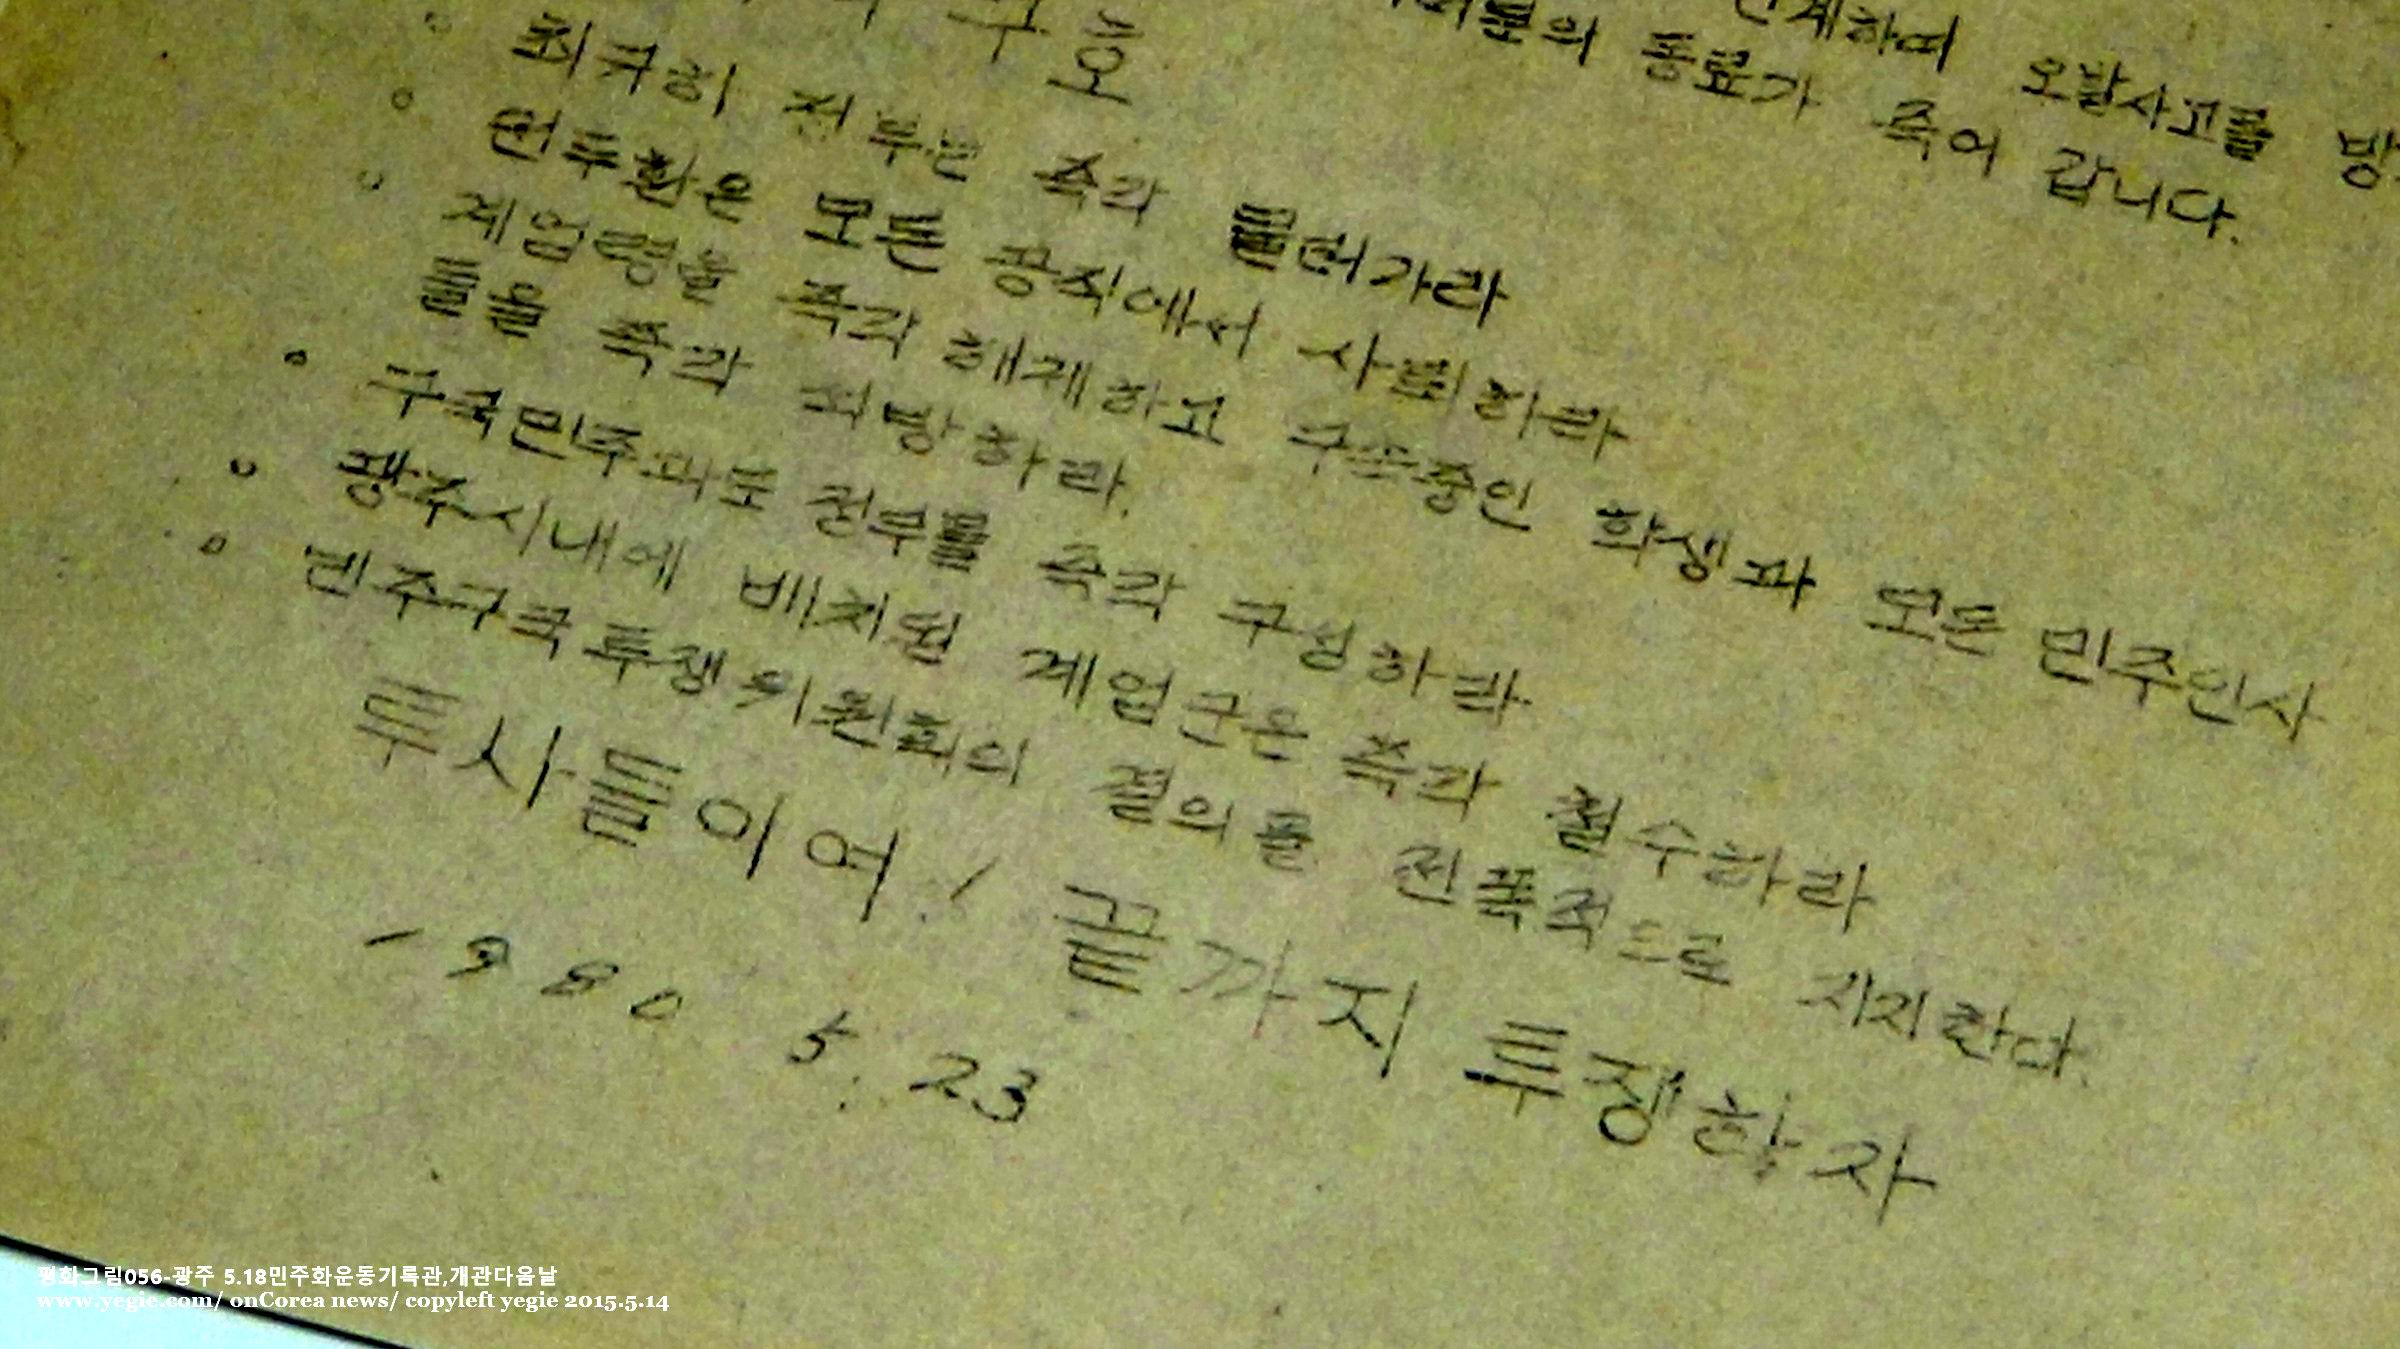 구호
인계하며 오발사고를
여러분의 동료가 죽어 갑니다.
◦ 최규하 정부는 즉각 물러가라
◦ 전두환은 모든 공직에서 사퇴하라
◦ 계엄령을 즉각 해제하고 구속중인 학생과 모든 민주인사
들을 즉각 석방하라.
◦ 구국민주과도 정부를 즉각 구성하라
◦ 광주시내에 배치된 계엄군은 즉각 철수하라
◦ 민주구국투쟁위원회의 결의를 전폭적으로 지지한다.
투사들이여! 끝까지 투쟁하자
1980 5. 23
평화그림056-광주 5.18민주화운동기록관,개관다음날
www.yegie.com/ onCorea news/ copyleft yegie 2015.5.14